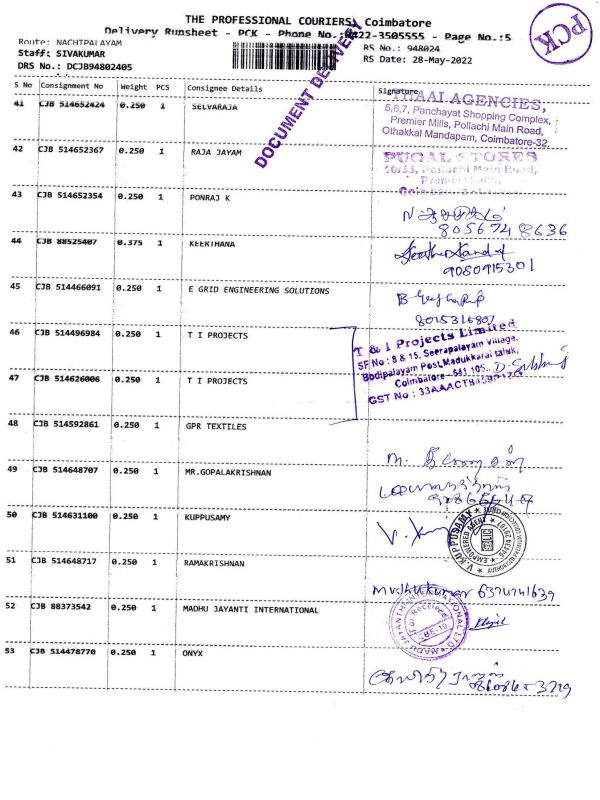 THE PROFESSIONAL COURIERS, Coimbatore
Delivery Runsheet - PCK - Phone No.:0422-3505555 - Page No.:5
PCK
Route: NACHIPALAYAM
RS No.: 948024
Staff: SIVAKUMAR
RS Date: 28-May-2022
DRS No.: DCJB94802405
DOCUMENT DELIVERY
S No Consignment No Weight PCS Consignee Details Signature
41 CJB 514652424 0.250 1 SELVARAJA
THAAI AGENCIES,
5,6,7, Panchayat Shopping Complex,
Premier Mills, Pollachi Main Road,
Othakkal Mandapam, Coimbatore-32.
42 CJB 514652367 0.250 1 RAJA JAYAM
PUGAL STORES
Pollachi Main Road,
43 CJB 514652354 0.250 1 PONRAJ K
8056748636
44 CJB 88525407 0.375 1 KEERTHANA
9080915301
45 CJB 514466091 0.250 1 E GRID ENGINEERING SOLUTIONS
8015316807
46 CJB 514496984 0.250 1 T I PROJECTS
T & I Projects Limited
SF No : 8 & 15, Seerapalayam Village,
Bodipalayam Post, Madukkarai taluk,
Coimbatore - 641 105.
GST No :
47 CJB 514626006 0.250 1 T I PROJECTS
48 CJB 514592861 0.250 1 GPR TEXTILES
49 CJB 514648707 0.250 1 MR.GOPALAKRISHNAN
50 CJB 514631100 0.250 1 KUPPUSAMY
V KUPPUSAMY
EMPOWERED AGENT
51 CJB 514648717 0.250 1 RAMAKRISHNAN
Muthukumar
52 CJB 88373542 0.250 1 MADHU JAYANTI INTERNATIONAL
For Received
53 CJB 514478770 0.250 1 ONYX